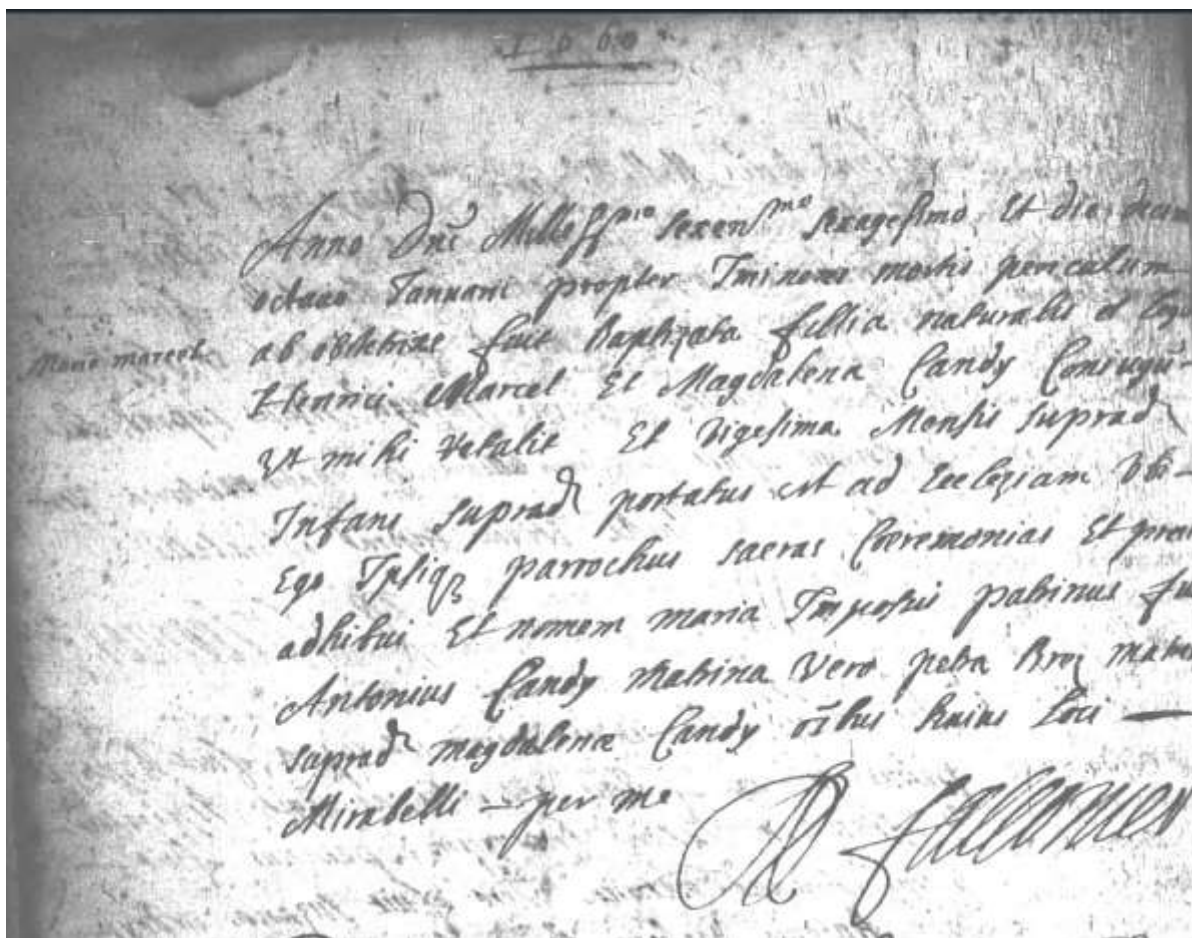 1660
Anno Dnī Milless^mo sexen^mo sexagesimo Et die decim
octavo Januarii propter Iminens mortis periculum
ab obstetrixe fuit Baptizata fillia naturalis et leg
Marie marcel
Henrici Marcel Et Magdalena Candy Coniugū-
Ut mihi retulit Et vigesima Mensis suprad
Infans suprad portatus est ad Ecclesiam Ubi-
Ego Ipsiq parrochus sacras Coeremonias Et prec
adhibui Et nomem maria Imposui patrinus fu
Antonius Candy Matrina Vero petra Broz mate
suprad magdalena Candy oībus huius loci
Mirabelli - per me